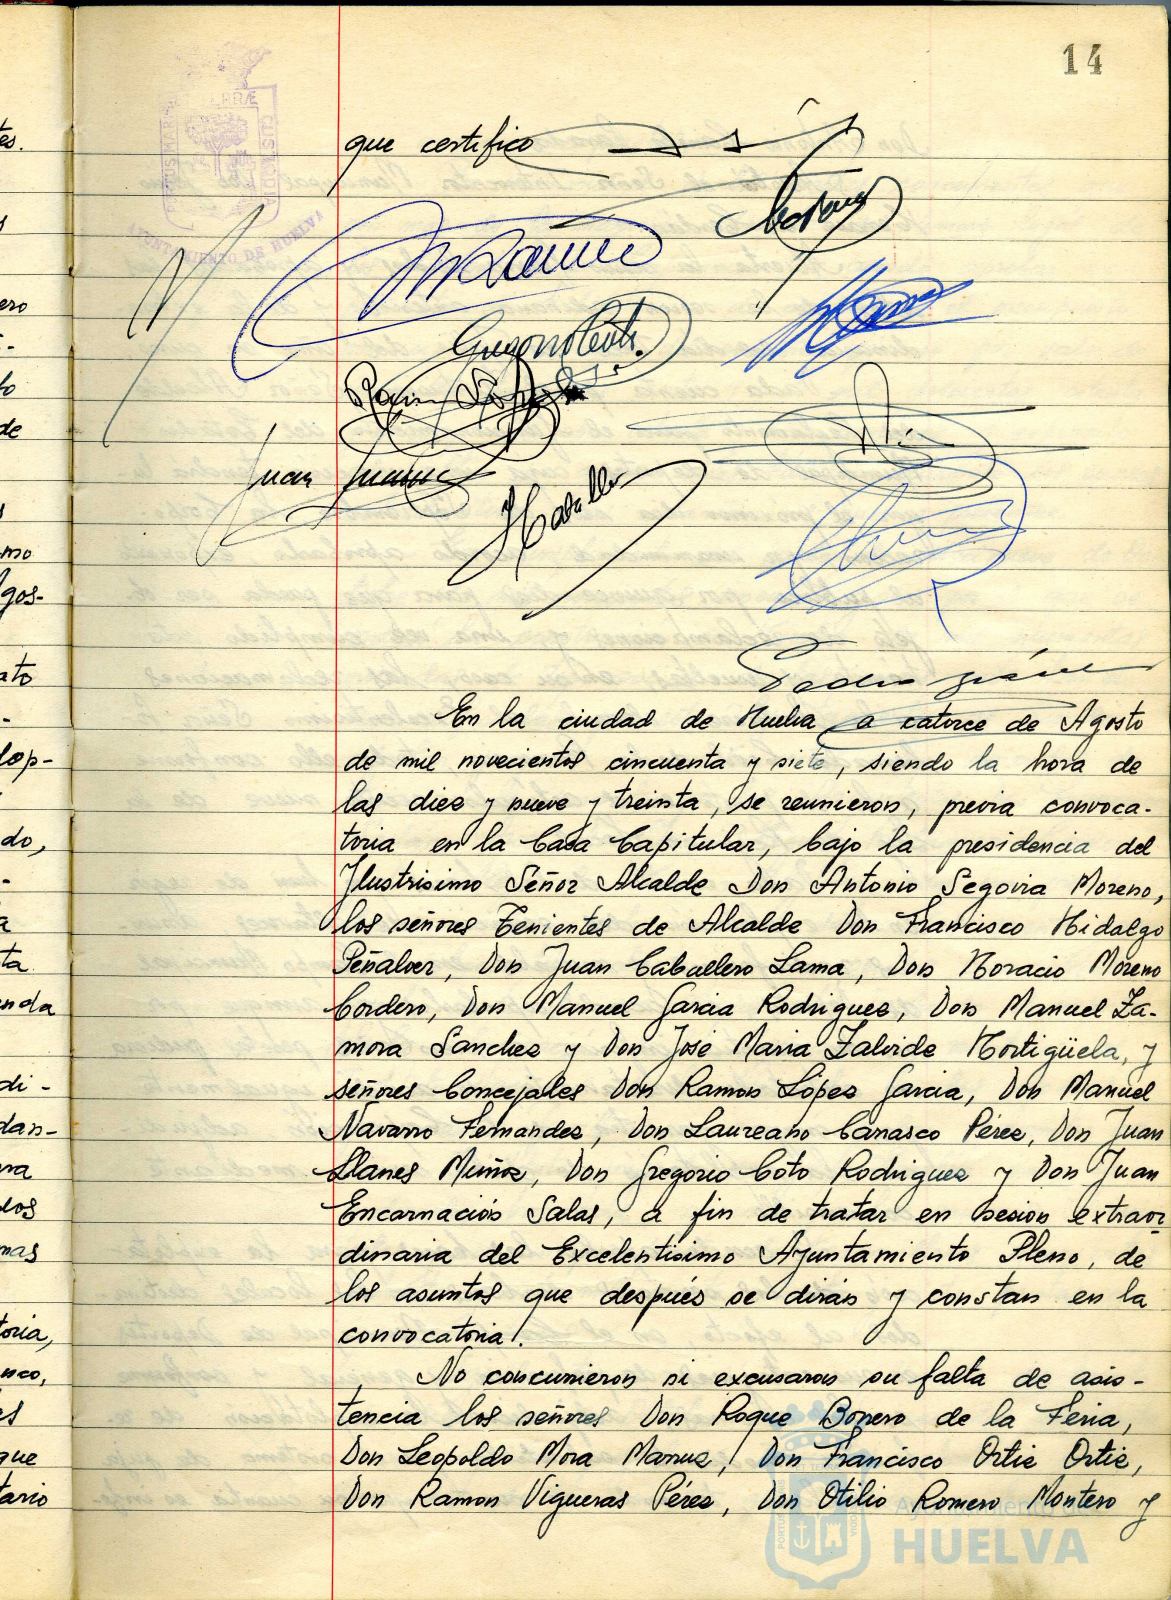 14
que certifico
Juan
En la ciudad de Huelva a catorce de Agosto
de mil novecientos cincuenta y siete, siendo la hora de
las diez y nueve y treinta, se reunieron, previa convoca-
toria en la Casa Capitular, bajo la presidencia del
Ilustrisimo Señor Alcalde Don Antonio Segovia Moreno,
los señores Tenientes de Alcalde Don Francisco Hidalgo
Peñalver, Don Juan Caballero Lama, Don Horacio Moreno
Cordero, Don Manuel Garcia Rodriguez, Don Manuel Za-
mora Sanchez y Don José Maria Zalvide Hortigüela, y
señores Concejales Don Ramon López Garcia, Don Manuel
Navarro Fernandez, Don Laureano Carrasco Pérez, Don Juan
Llanes Muñoz, Don Gregorio Coto Rodriguez y Don Juan
Encarnación Salas, a fin de tratar en sesion extraor
dinaria del Excelentisimo Ayuntamiento Pleno, de
los asuntos que después se dirán y constan en la
convocatoria.
No concurrieron ni excusaron su falta de asis-
tencia los señores Don Roque Borrero de la Feria,
Don Leopoldo Mora Marruz, Don Francisco Ortiz Ortiz,
Don Ramon Vigueras Pérez, Don Otilio Romero Montero y
HUELVA